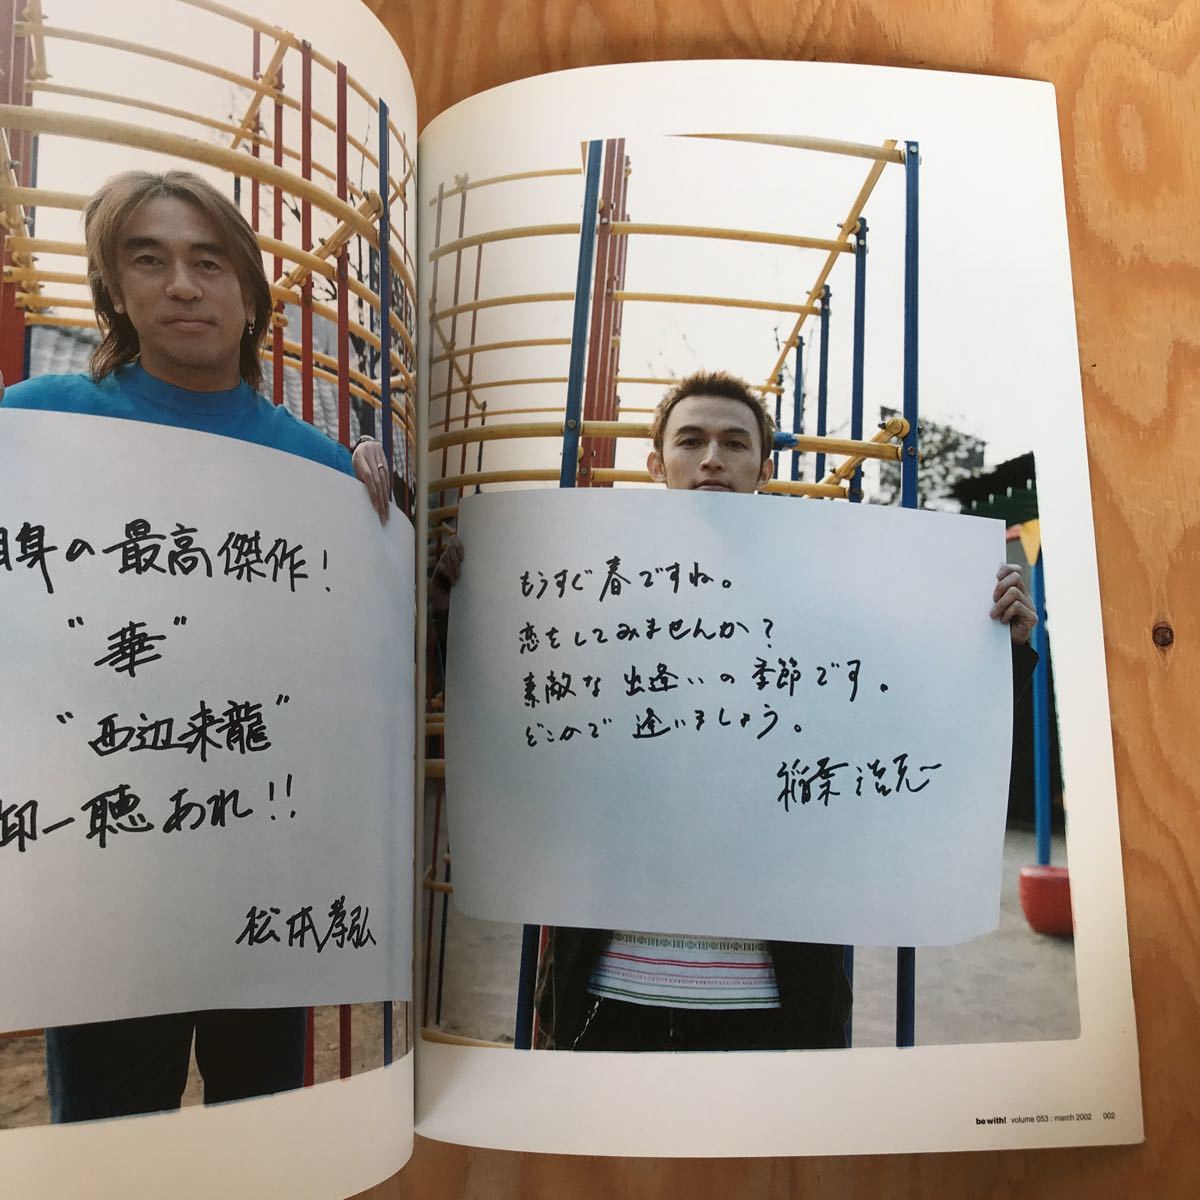 自身の最高傑作!
"華"
"西辺来龍"
御一聴あれ!!
松本孝弘
もうすぐ春ですね。
恋をしてみませんか?
素敵な出逢いの季節です。
どこかで逢いましょう。
稲葉浩志
be with! volume 053 : march 2002 002